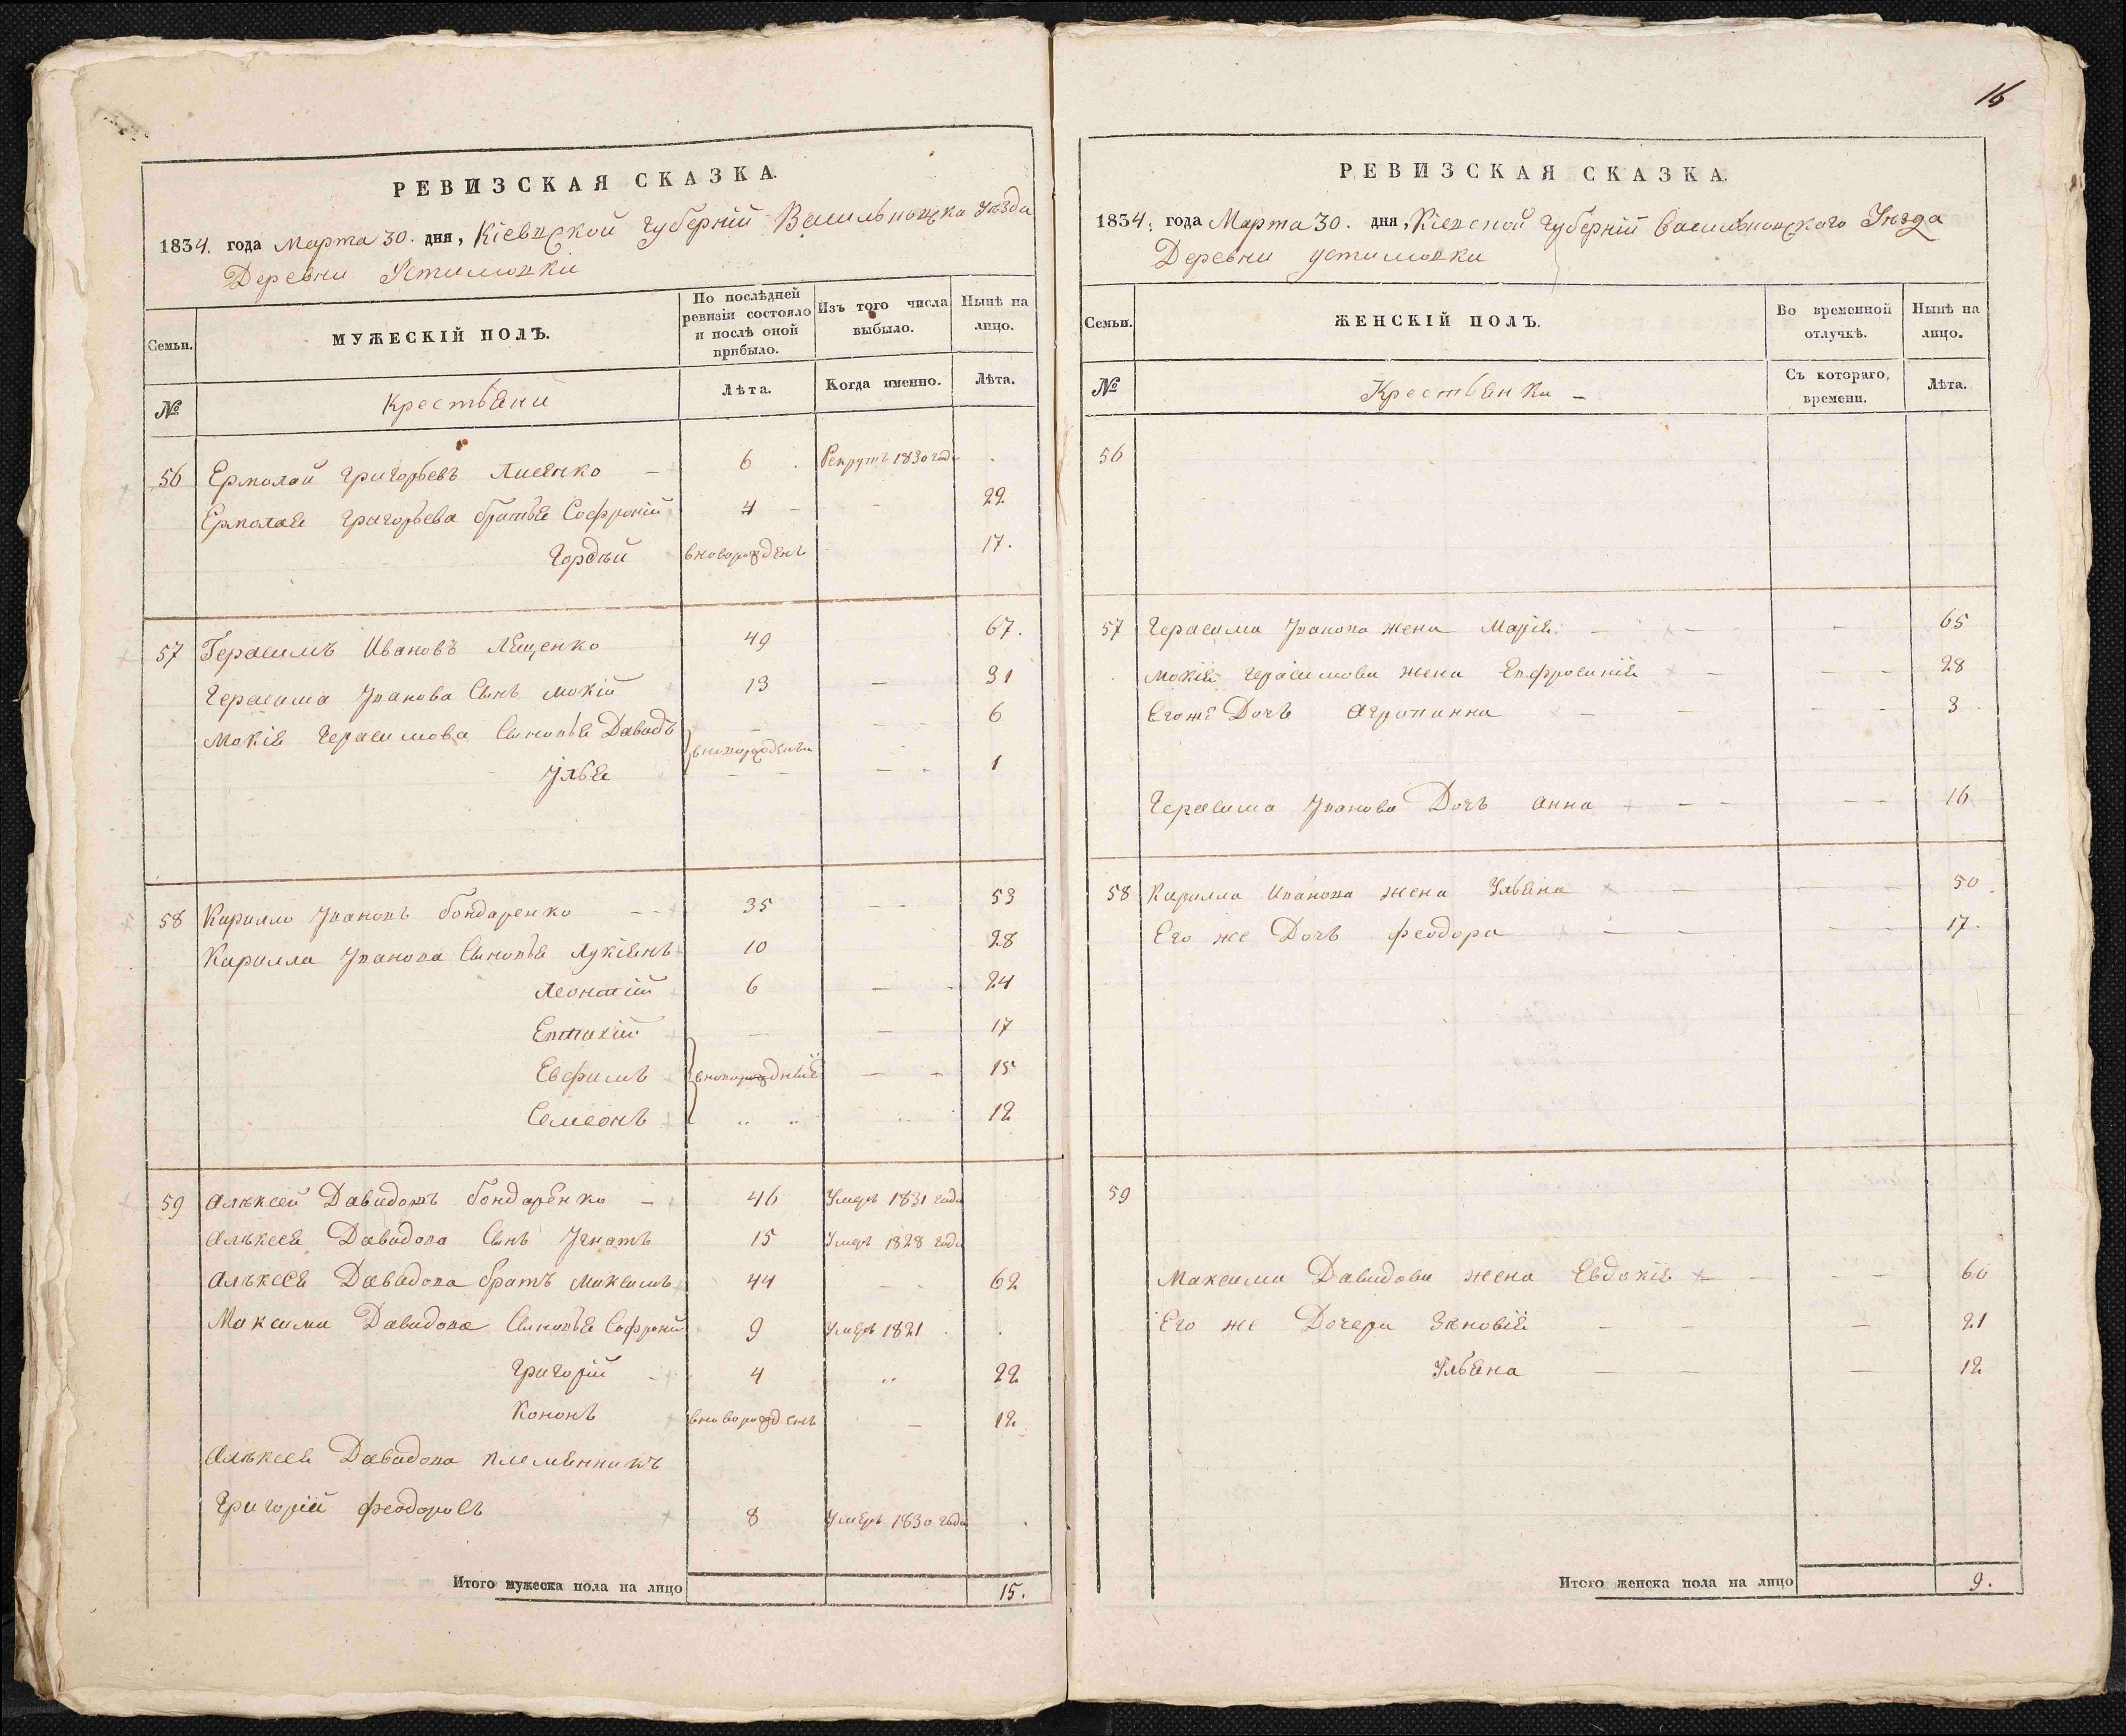 РЕВИЗСКАЯ СКАЗКА.
1834. года Марта 30. дня, Кіевской Губерніи Васильковска Уѣзда
Деревни Устимовки
Семьи.
МУЖЕСКІЙ ПОЛЪ.
По послѣдней ревизіи состояло и послѣ оной прибыло.
Изъ того числа выбыло.
Нынѣ на лицо.
№
Крестьяни
Лѣта.
Когда именно.
Лѣта.
56 Ермолай Григорьевъ Лисенко 6 Рекрутъ 1830 года
Ермолая Григорьева братья Софроній 4 22
Гордѣй вноворожденъ 17.
57 Герасимъ Ивановъ Лященко 49 67.
Герасима Иванова Сынъ Мокій 13 31
Мокія Герасимова Сыновья Давидъ 6
вноворожденни
Илья 1
58 Кирилло Ивановъ Бондаренко 35 53
Кирилла Иванова Сыновья Лукіянъ 10 28
Леонтій 6 24
Евтихій 17
Евфимъ вноворожднѣіе 15
Семеонъ 12
59 Алѣксей Давидовъ Бондаренко 46 Умеръ 1831 года
Алѣксея Давидова Сынъ Игнатъ 15 Умеръ 1828 года
Алѣксея Давидова братъ Максимъ 44 62
Максима Давидова Сыновья Софроній 9 Умеръ 1821
Григорій 4 22
Кононъ вноворожденъ 12
Алѣксея Давидова племянникъ
Григорій Феодоровъ 8 Умеръ 1830 года
Итого мужеска пола на лицо 15.
16
РЕВИЗСКАЯ СКАЗКА.
1834. года Марта 30. дня, Кіевской Губерніи Васильковского Уѣзда
Деревни Устимовки
Семьи.
ЖЕНСКІЙ ПОЛЪ.
Во временной отлучкѣ.
Нынѣ на лицо.
№
Крестьянки
Съ котораго, времени.
Лѣта.
56
57 Герасима Иванова жена Марія 65
Мокія Герасимова жена Евфросинія 28
Его же Дочь Агрипинна 3
Герасима Иванова Дочь Анна 16
58 Кирилла Иванова жена Ульяна 50
Его же Дочь Феодора 17.
59
Максима Давидова жена Евдокія 60
Его же Дочери Зѣновія 21
Ульяна 12
Итого женска пола на лицо 9.